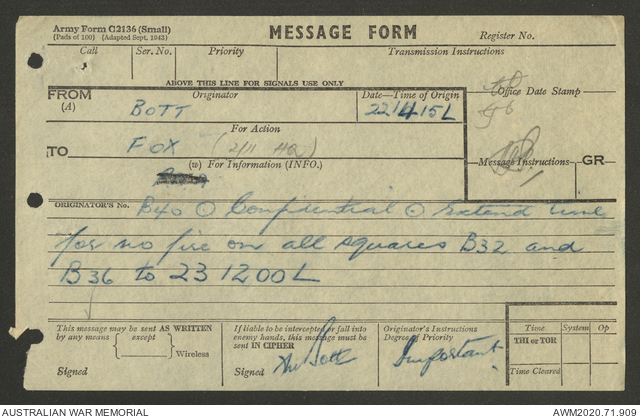 Army Form C2136 (Small)
(Pads of 100) (Adapted Sept. 1943)
MESSAGE FORM
Register No.
Call
Ser. No.
Priority
Transmission Instructions
ABOVE THIS LINE FOR SIGNALS USE ONLY
FROM
(A)
Originator
BOTT
Date—Time of Origin
221415L
Office Date Stamp
For Action
TO
FOX (2/11 HQ)
(w) For Information (INFO.)
Message Instructions
GR
ORIGINATOR'S No.
B40 ⊙ Confidential ⊙ Extend time
for no fire on all squares B32 and
B36 to 231200L
This message may be sent AS WRITTEN
by any means
except
Wireless
Signed
If liable to be intercepted or fall into
enemy hands, this message must be
sent IN CIPHER
Signed Bott
Originator's Instructions
Degree of Priority
Important
Time
System
Op
THI or TOR
Time Cleared
AUSTRALIAN WAR MEMORIAL
AWM2020.71.909